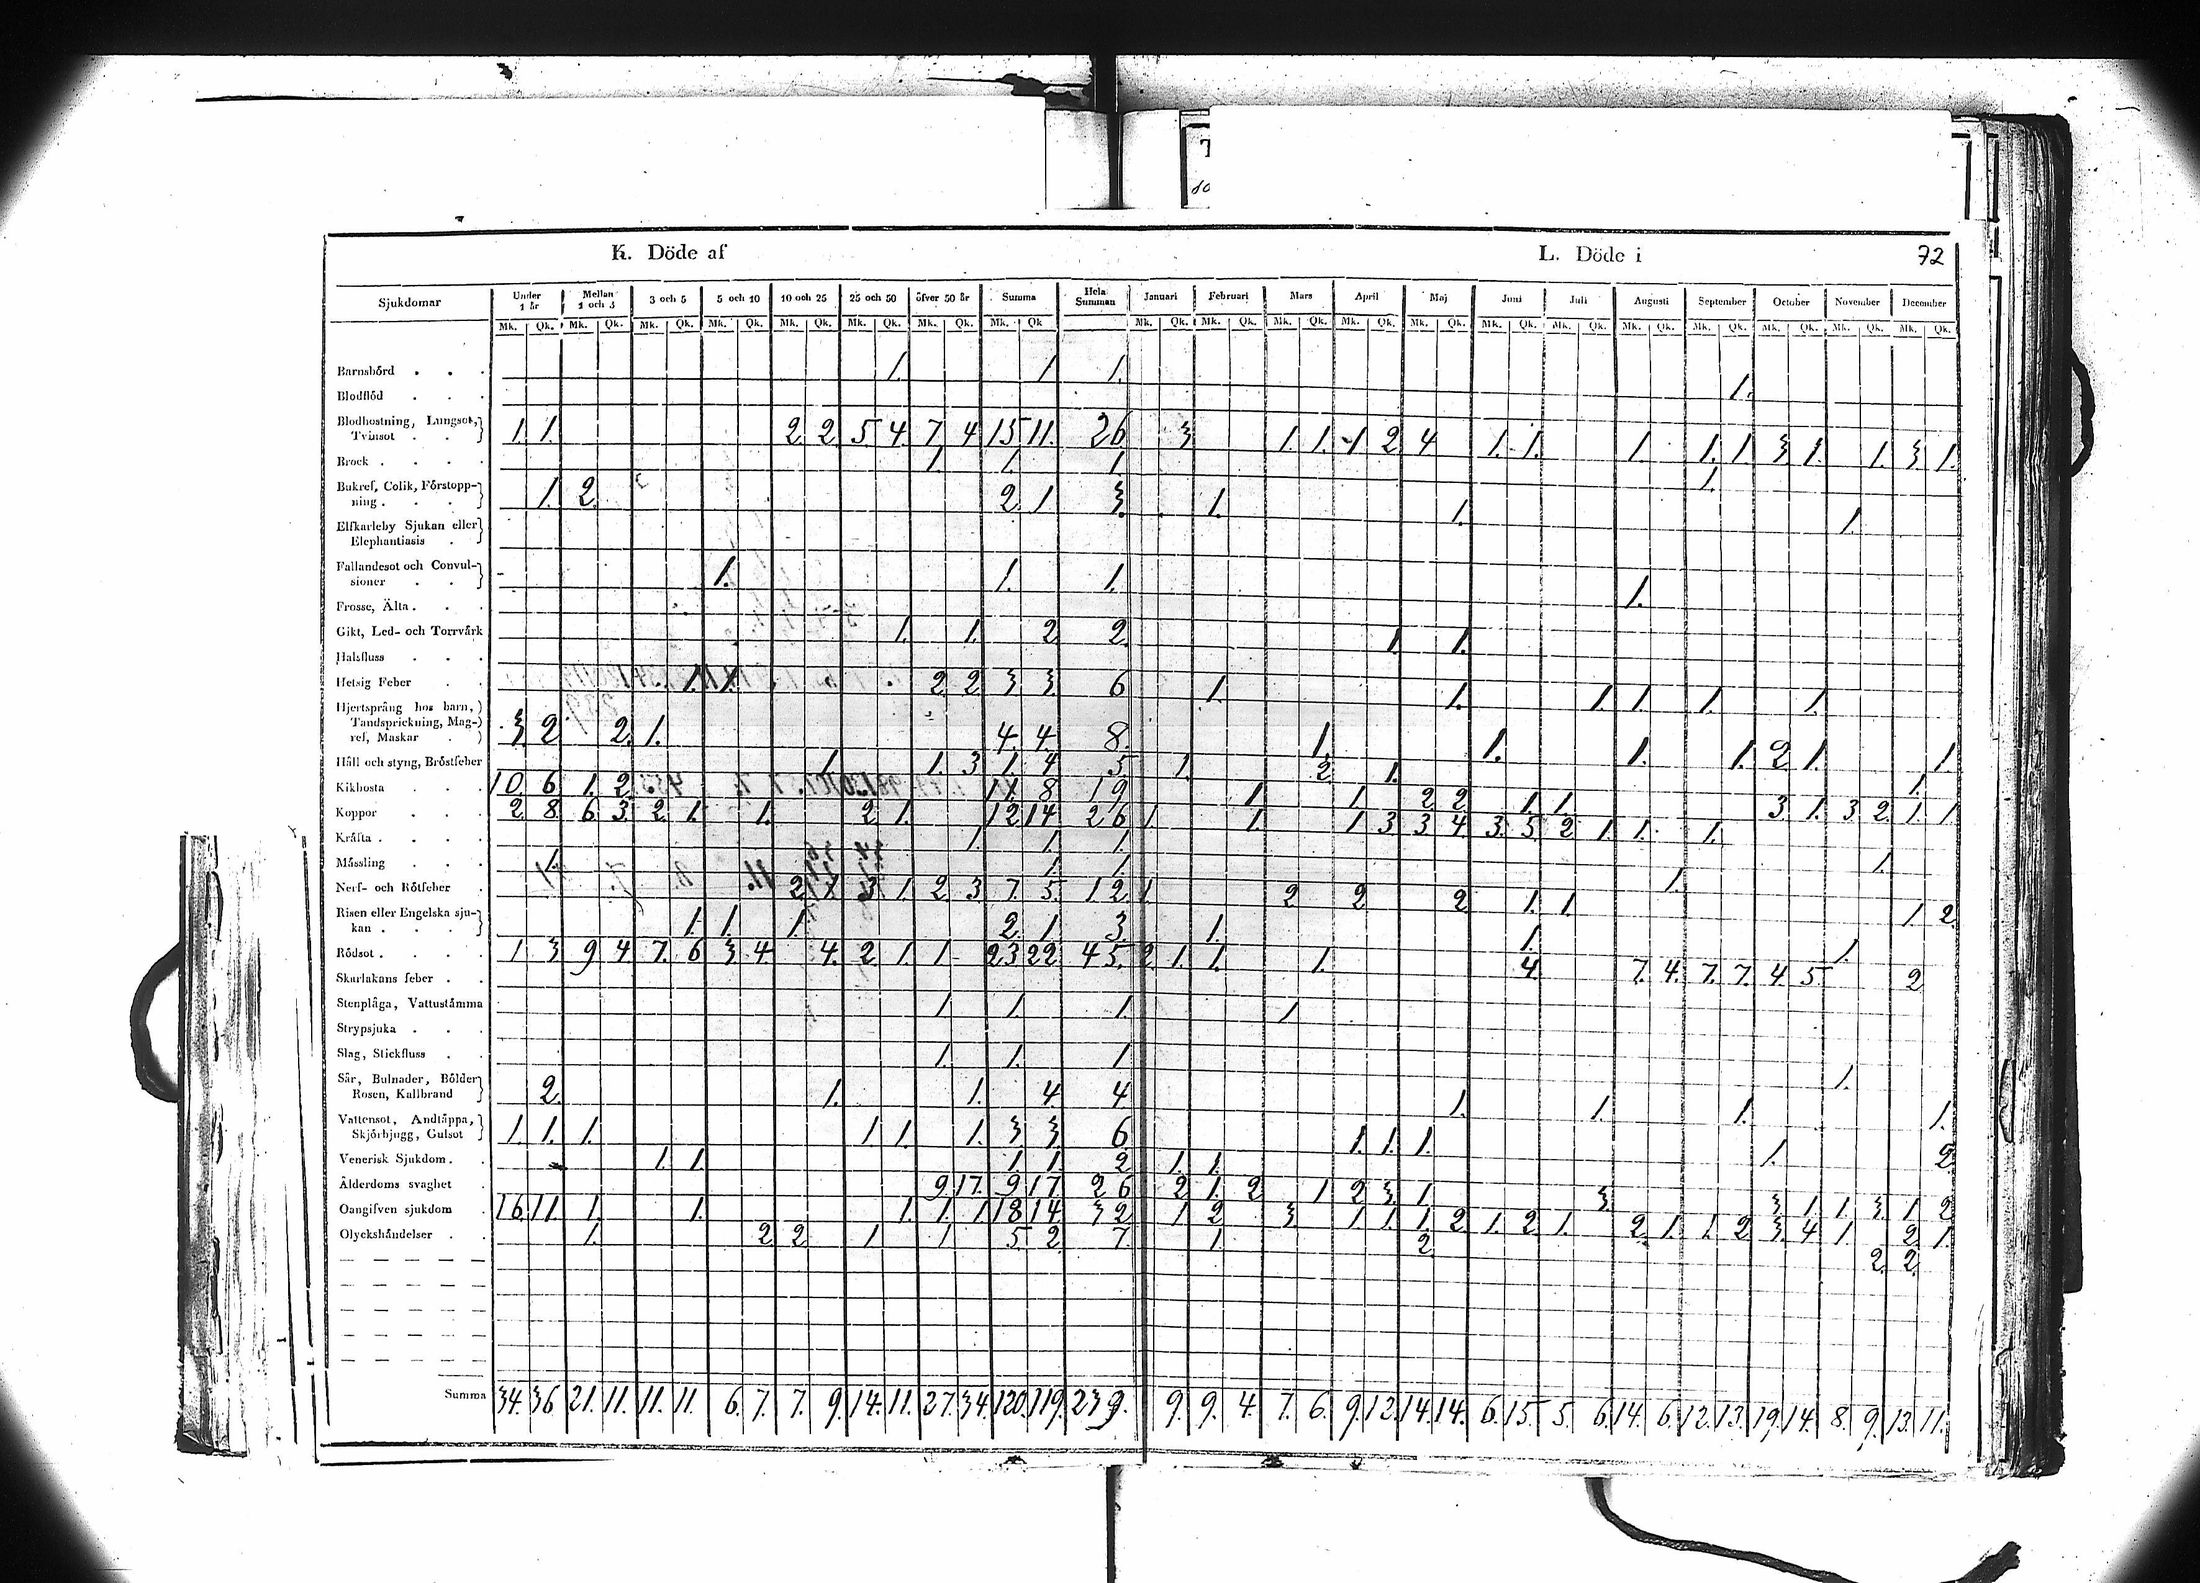 K. Döde af L. Döde i 72
Sjukdomar Under 1 år Mellan 1 och 3 3 och 5 5 och 10 10 och 25 25 och 50 öfver 50 år Summa Hela Summan Januari Februari Mars April Maj Juni Juli Augusti September October November December
Mk. Qk. Mk. Qk. Mk. Qk. Mk. Qk. Mk. Qk. Mk. Qk. Mk. Qk. Mk. Qk Mk. Qk. Mk. Qk. Mk. Qk. Mk. Qk. Mk. Qk. Mk. Qk. Mk. Qk. Mk. Qk. Mk. Qk. Mk. Qk. Mk. Qk. Mk. Qk.
Barnsbörd . . . 1. 1 1. 1.
Blodflöd . . .
Blodhostning, Lungsot,
Tvinsot . . 1. 1. 2 2 5. 4. 7. 4 15 11. 26 3 1. 1. 1 2 4 1. 1. 1. 1. 1. 3 1. 1. 3 1.
Brock . . . . 1. 1. 1. 1.
Bukref, Colik, Förstopp-
ning . . . 1. 2. 2. 1 3. 1. 1. 1.
Elfkarleby Sjukan eller
Elephantiasis .
Fallandesot och Convul-
sioner . . 1. 1. 1. 1.
Frosse, Älta . . .
Gikt, Led- och Torrvärk 1. 1. 2 2. 1. 1.
Halsfluss . . .
Hetsig Feber . . 1. 1. 2 2 3 3. 6 1. 1. 1. 1. 1. 1.
Hjertsprång hos barn,
Tandsprickning, Mag-
ref, Maskar . 3. 2 2. 1. 4. 4. 8. 1. 1. 1. 1. 2 1. 1.
Håll och styng, Bröstfeber 1. 1. 3 1. 4 5 1. 2 1. 1.
Kikhosta . . . 10. 6 1. 2. 11. 8 19 1. 1. 2 2. 1. 1. 3 1. 3 2 1. 1.
Koppor . . . 2 8. 6 3 2 1. 1. 2 1. 12 14 26 1. 1. 1 3 3 4. 3. 5 2 1. 1. 1.
Kräfta . . . . 1. 1 1. 1.
Mässling . . . 1. 1. 1. 1.
Nerf- och Rötfeber . 2 1. 3 1. 2 3 7. 5. 12 1. 2 2 2 1. 1. 1 2
Risen eller Engelska sju-
kan . . . 1. 1. 1. 2. 1 3. 1. 1. 1.
Rödsot . . . . 1 3 9 4 7. 6 3. 4. 4. 2 1 1 23 22 45. 2. 1. 1. 1. 4. 7. 4. 7. 7. 4 5 2
Skarlakans feber . .
Stenplåga, Vattustämma 1. 1. 1. 1
Strypsjuka . . .
Slag, Stickfluss . . 1. 1. 1 1.
Sår, Bulnader, Bölder
Rosen, Kallbrand 2. 1. 1. 4 4 1. 1. 1. 1.
Vattensot, Andtäppa,
Skjörbjugg, Gulsot 1. 1. 1. 1 1. 1. 3 3. 6 1. 1. 1. 1. 2.
Venerisk Sjukdom . . 1. 1. 1. 1 2 1. 1.
Ålderdoms svaghet . 9 17. 9 17. 26 2 1. 2 1 2 3. 1. 3 3 1 1 3. 1 2
Oangifven sjukdom . 16. 11. 1. 1. 1. 1. 1 18 14 32 1 2 3 1 1. 1. 2 1. 2 1. 2 1. 1. 2 3. 4 1. 2. 1.
Olyckshändelser . . 1. 2 2 1 1 5. 2 7. 1. 2. 2. 2.
Summa 34. 36 21. 11. 11. 11. 6. 7. 7. 9. 14. 11. 27. 34. 120. 119. 239. 9. 9. 4. 7. 6. 9. 12. 14. 14. 6. 15. 5. 6. 14. 6. 12. 13. 19. 14. 8. 9. 13. 11.